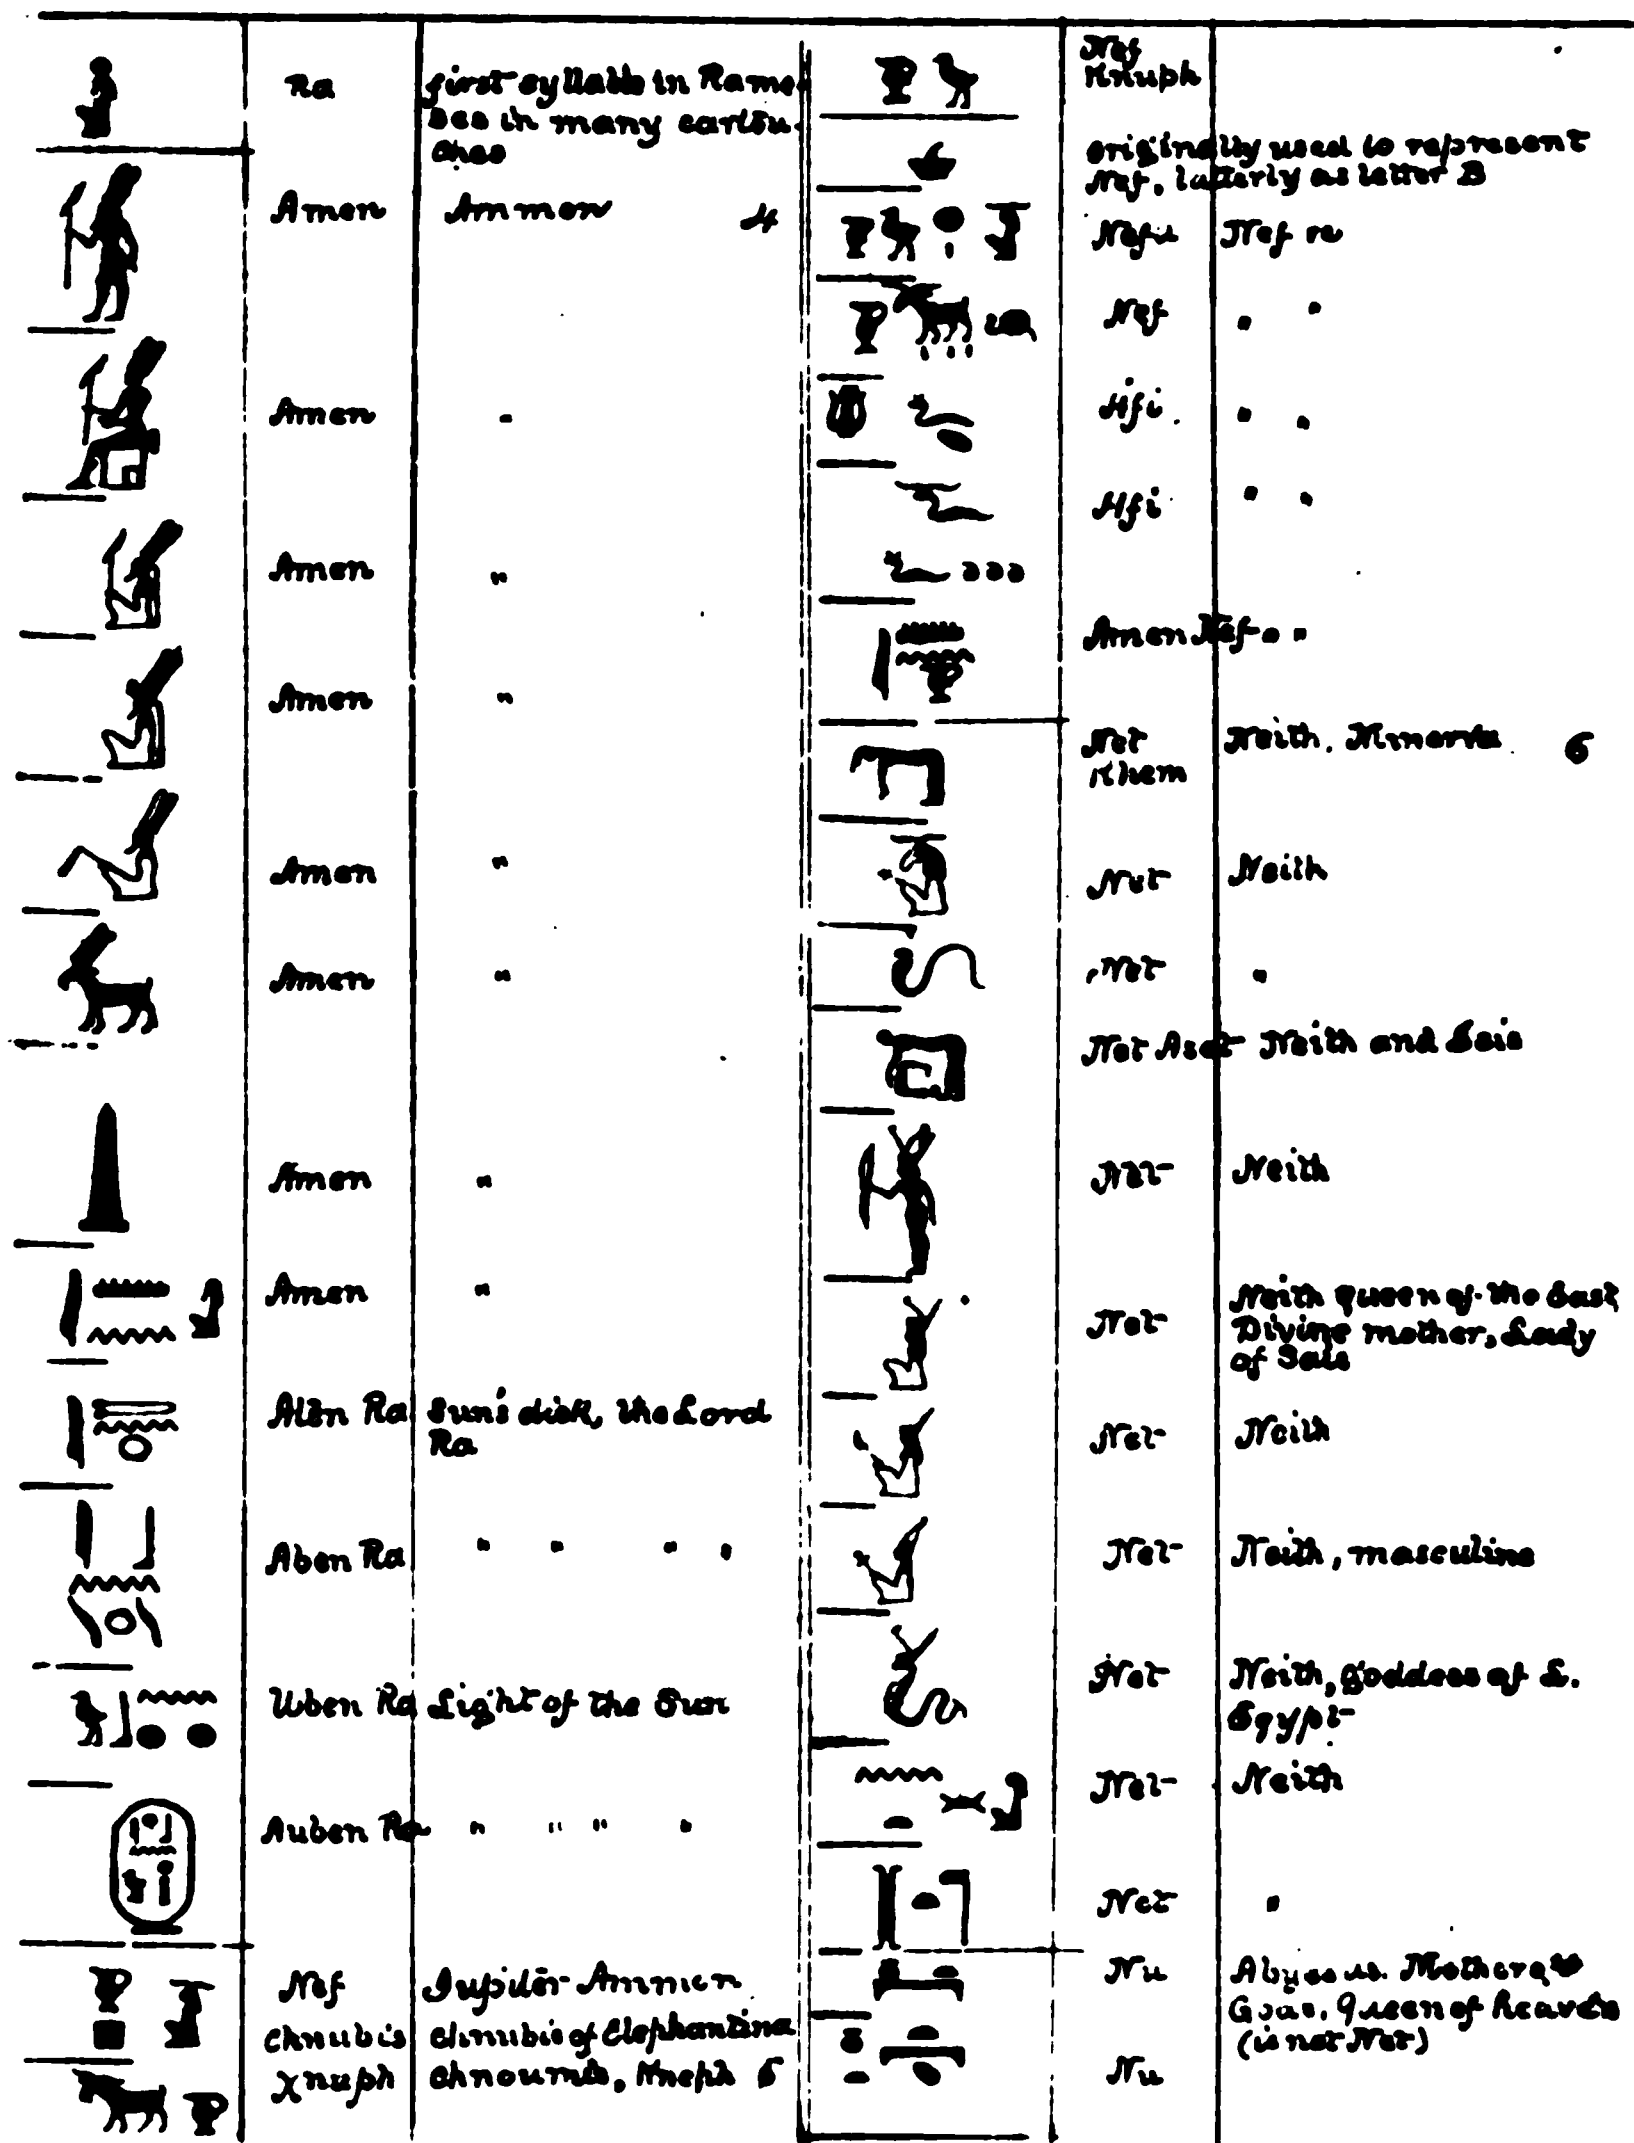 Ra first syllable in Rame-
ses in many cartou-
ches
Amen Ammon 4
Amen "
Amen "
Amen "
Amen "
Amen "
Amen "
Amen "
Aten Ra Sun's disk, the Lord
Ra
Aben Ra " " " "
Uben Ra Light of the Sun
Auben Ra " " " "
Nef Jupiter Ammon
Chnubis Chnubis of Elephantina
Xnuph Chnoumis, Kneph 5
Nef
Knuph
originally used to represent
Nef, latterly as letter B
Nefu Nef re
Nef " "
Hfi " "
Hfi " "
Amen Nef " "
Net Neith, Minerva 6
Khem
Net Neith
Net "
Net Aset Neith and Isis
Net Neith
Net Neith queen of the East
Divine mother, Lady
of Sais
Net Neith
Net Neith, masculine
Net Neith, goddess of L.
Egypt
Net Neith
Net "
Nu Abyssus. Mother of
Gods, Queen of heaven
(is not Net)
Nu